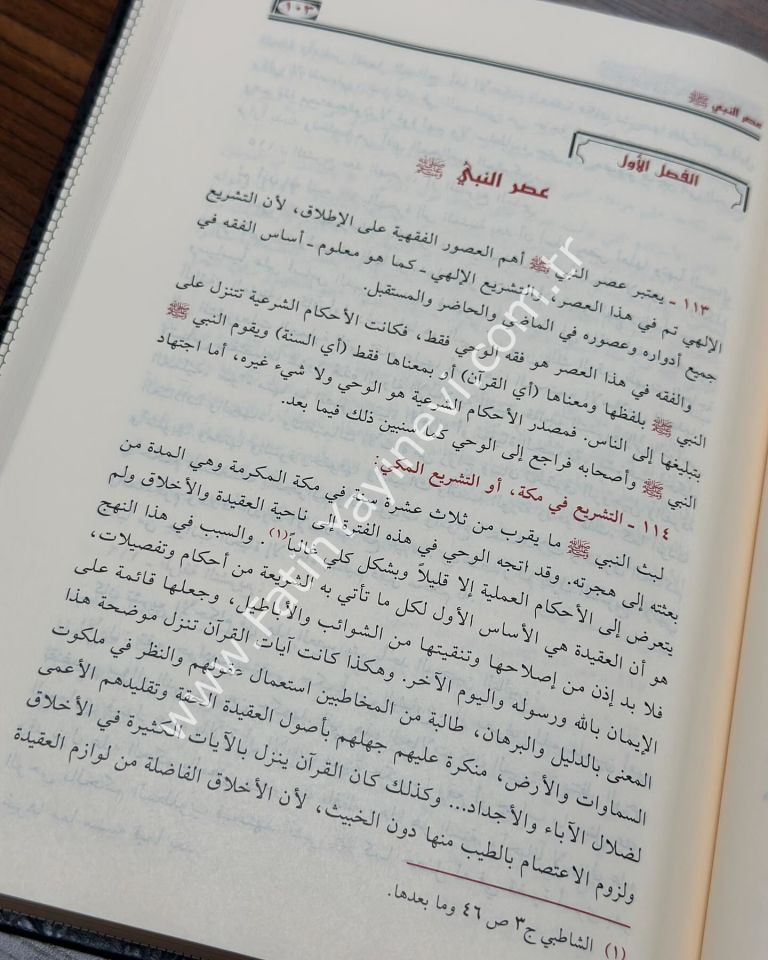 ١٠٣
عصر النبي ﷺ
الفصل الأول
عصر النبيّ ﷺ
١١٣ ـ يعتبر عصر النبي ﷺ أهم العصور الفقهية على الإطلاق، لأن التشريع
الإلهي تم في هذا العصر، والتشريع الإلهي ـ كما هو معلوم ـ أساس الفقه في
جميع أدواره وعصوره في الماضي والحاضر والمستقبل.
والفقه في هذا العصر هو فقه الوحي فقط، فكانت الأحكام الشرعية تتنزل على
النبي ﷺ بلفظها ومعناها (أي القرآن) أو بمعناها فقط (أي السنة) ويقوم النبي ﷺ
بتبليغها إلى الناس. فمصدر الأحكام الشرعية هو الوحي ولا شيء غيره، أما اجتهاد
النبي ﷺ وأصحابه فراجع إلى الوحي كما سنبين ذلك فيما بعد.
١١٤ ـ التشريع في مكة، أو التشريع المكي:
لبث النبي ﷺ ما يقرب من ثلاث عشرة سنة في مكة المكرمة وهي المدة من
بعثته إلى هجرته. وقد اتجه الوحي في هذه الفترة إلى ناحية العقيدة والأخلاق ولم
يتعرض إلى الأحكام العملية إلا قليلاً وبشكل كلي غالباً(١). والسبب في هذا النهج
هو أن العقيدة هي الأساس الأول لكل ما تأتي به الشريعة من أحكام وتفصيلات،
فلا بد إذن من إصلاحها وتنقيتها من الشوائب والأباطيل، وجعلها قائمة على
الإيمان بالله ورسوله واليوم الآخر. وهكذا كانت آيات القرآن تنزل موضحة هذا
المعنى بالدليل والبرهان، طالبة من المخاطبين استعمال عقولهم والنظر في ملكوت
السماوات والأرض، منكرة عليهم جهلهم بأصول العقيدة الحقة وتقليدهم الأعمى
لضلال الآباء والأجداد... وكذلك كان القرآن ينزل بالآيات الكثيرة في الأخلاق
ولزوم الاعتصام بالطيب منها دون الخبيث، لأن الأخلاق الفاضلة من لوازم العقيدة
(١) الشاطبي ج٣ ص ٤٦ وما بعدها.
www.fatihyayinevi.com.tr